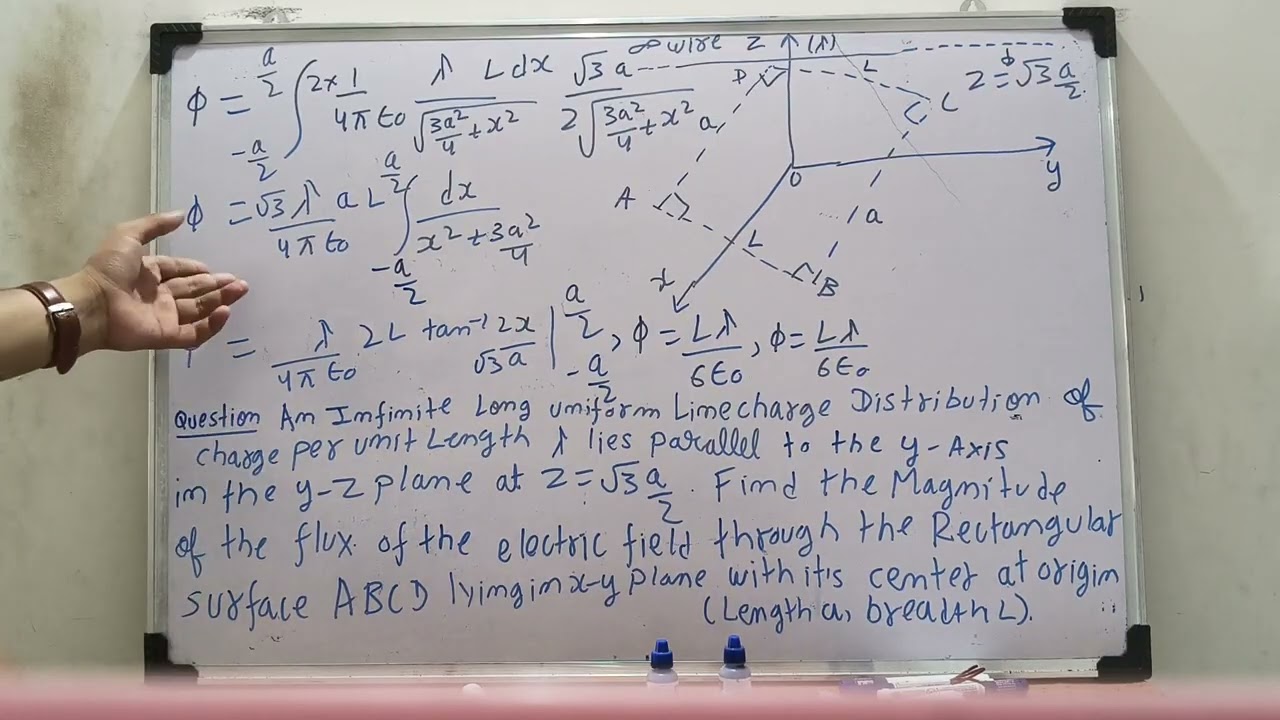 ∞ wire Z (λ)
ϕ = a/2 ∫ -a/2 2×1/4π ε0 λ L dx/√(3a²/4 + x²) √3 a/2√(3a²/4 + x²)
D L C Z = √3 a/2
a
ϕ = √3 λ/4π ε0 a L a/2 ∫ -a/2 dx/x² + 3a²/4
O y
A a
L
x B
= λ/4π ε0 2L tan⁻¹ 2x/√3 a | a/2 -a/2, ϕ = Lλ/6ε0, ϕ = Lλ/6ε0
Question An Infinite Long uniform Linecharge Distribution of
charge per unit Length λ lies parallel to the y-Axis
in the y-z plane at Z = √3 a/2. Find the Magnitude
of the flux of the electric field through the Rectangular
surface ABCD lying in x-y plane with it's center at origin
(Length a, breadth L).